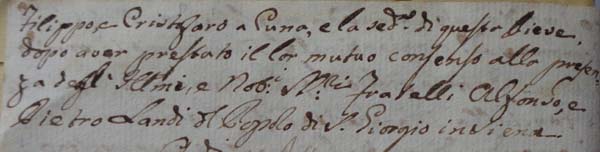 Filippo, e Cristofaro a Cuna, e la sed.ª di questa Pieve,
dopo aver prestato il lor mutuo consenso alla presen-
za degl' Ill̃mi, e Nob.i S.ri Fratelli Alfonso, e
Pietro Landi del Popolo di S. Giorgio in Siena